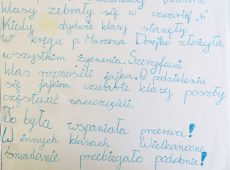 klasy zebrały się w czwartej "b".
Kiedy dyżurni klasy stanęły
w kręgu p. Marzena złożyła
wszystkim życzenia. Szeregowi
klas roznosili jajka. Po podzieleniu
się jajkiem czwarte klasy poszły
częstować nauczycieli.
To była wspaniała przerwa!
W innych klasach Wielkanocne
śniadanie przebiegało podobnie!